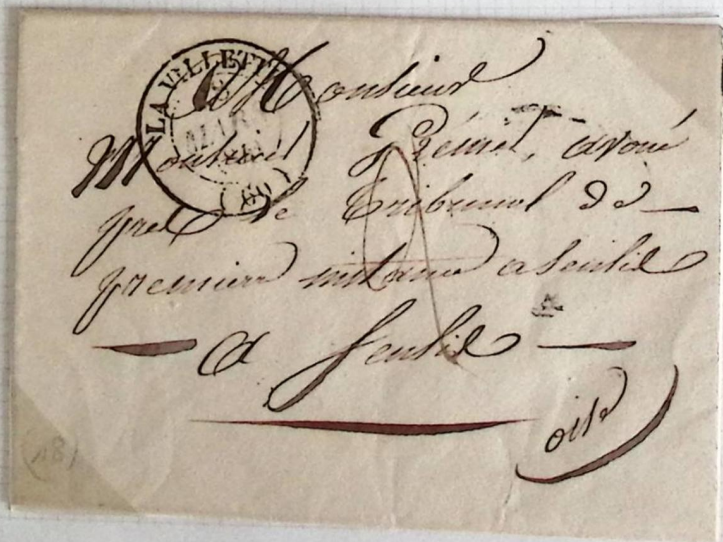 LA VILLETTE
MARS
(60)
Monsieur
Montreuil Prémel, avoué
pres le Tribunal de
premiere instance a Senlis
a Senlis
oise
(18)